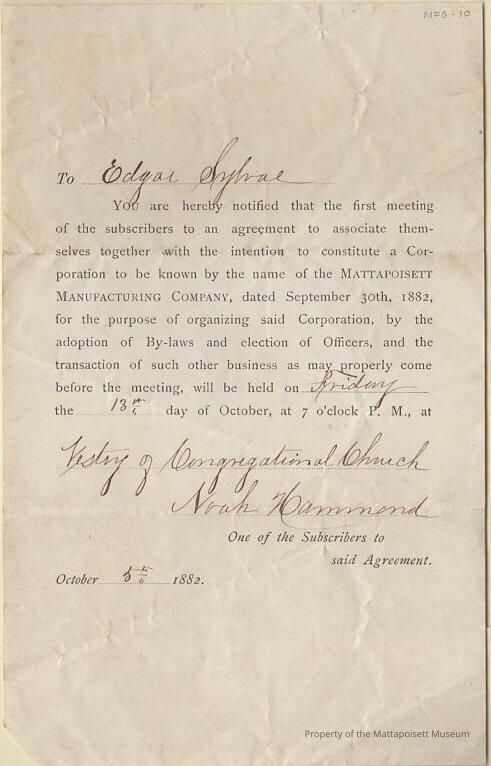 MFG-10
To Edgar Sylvae
You are hereby notified that the first meeting
of the subscribers to an agreement to associate them-
selves together with the intention to constitute a Cor-
poration to be known by the name of the MATTAPOISETT
MANUFACTURING COMPANY, dated September 30th, 1882,
for the purpose of organizing said Corporation, by the
adoption of By-laws and election of Officers, and the
transaction of such other business as may properly come
before the meeting, will be held on Friday
the 13th day of October, at 7 o'clock P. M., at
Vestry of Congregational Church
Noah Hammond
One of the Subscribers to
said Agreement.
October 5th 1882.
Property of the Mattapoisett Museum